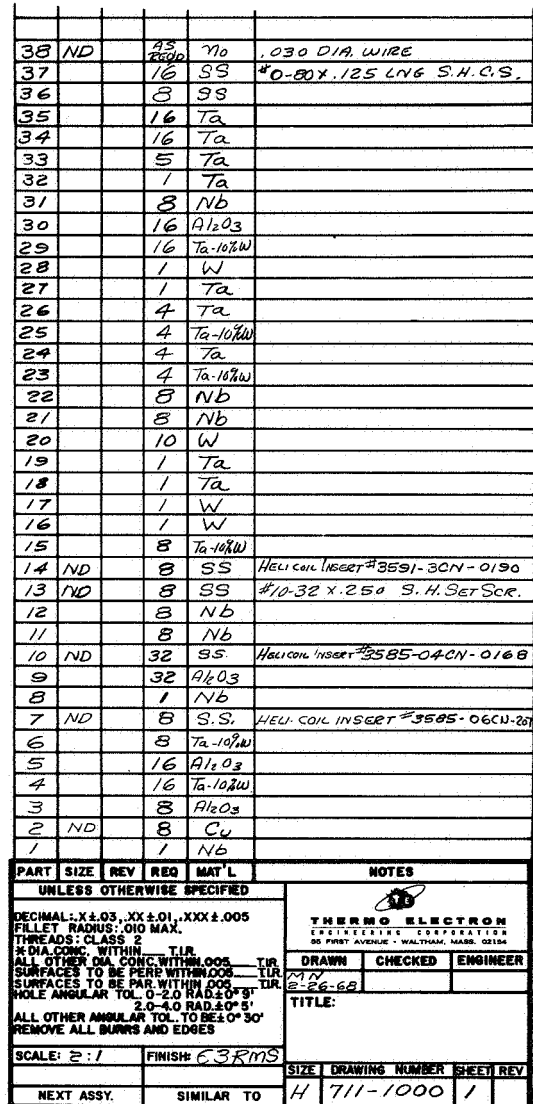 38 ND AS REQD Mo .030 DIA. WIRE
37 16 SS #0-80 X .125 LNG S.H.C.S.
36 8 SS
35 16 Ta
34 16 Ta
33 5 Ta
32 1 Ta
31 8 Nb
30 16 Al2O3
29 16 Ta-10%W
28 1 W
27 1 Ta
26 4 Ta
25 4 Ta-10%W
24 4 Ta
23 4 Ta-10%W
22 8 Nb
21 8 Nb
20 10 W
19 1 Ta
18 1 Ta
17 1 W
16 1 W
15 8 Ta-10%W
14 ND 8 SS HELICOIL INSERT #3591-3CN-0190
13 ND 8 SS #10-32 X .250 S.H. SET SCR.
12 8 Nb
11 8 Nb
10 ND 32 SS. HELICOIL INSERT #3585-04CN-0168
9 32 Al2O3
8 1 Nb
7 ND 8 S.S. HELI-COIL INSERT #3585-06CN-207
6 8 Ta-10%W
5 16 Al2O3
4 16 Ta-10%W
3 8 Al2O3
2 ND 8 Cu
1 1 Nb
PART SIZE REV REQ MAT'L NOTES
UNLESS OTHERWISE SPECIFIED
DECIMAL: .X±.03, .XX±.01, .XXX±.005
FILLET RADIUS: .010 MAX.
THREADS: CLASS 2
* DIA. CONC. WITHIN T.I.R.
ALL OTHER DIA. CONC. WITHIN .005 T.I.R.
SURFACES TO BE PERP. WITHIN .005 T.I.R.
SURFACES TO BE PAR. WITHIN .005 T.I.R.
HOLE ANGULAR TOL. 0-2.0 RAD.±0° 9'
2.0-4.0 RAD.±0° 5'
ALL OTHER ANGULAR TOL. TO BE±0° 30'
REMOVE ALL BURRS AND EDGES
SCALE: 2:1 FINISH: 63RMS
NEXT ASSY. SIMILAR TO
THERMO ELECTRON
ENGINEERING CORPORATION
85 FIRST AVENUE - WALTHAM, MASS. 02154
DRAWN CHECKED ENGINEER
MN
2-26-68
TITLE:
SIZE DRAWING NUMBER SHEET REV
H 711-1000 1